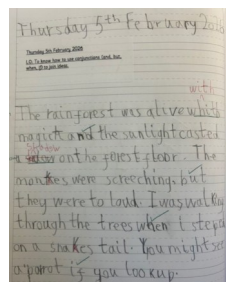 Thursday 5th February 2026
Thursday 5th February 2026
L.O. To know how to use conjunctions (and, but,
when, if) to join ideas.
with
The rainforest was alive whith
magick and the sunlight casted
a shadow on the forest floor. The
monkes were screeching, but
they were to loud. I was walking
through the trees when I steped
on a snakes tail. You might see
a parrot if you look up.